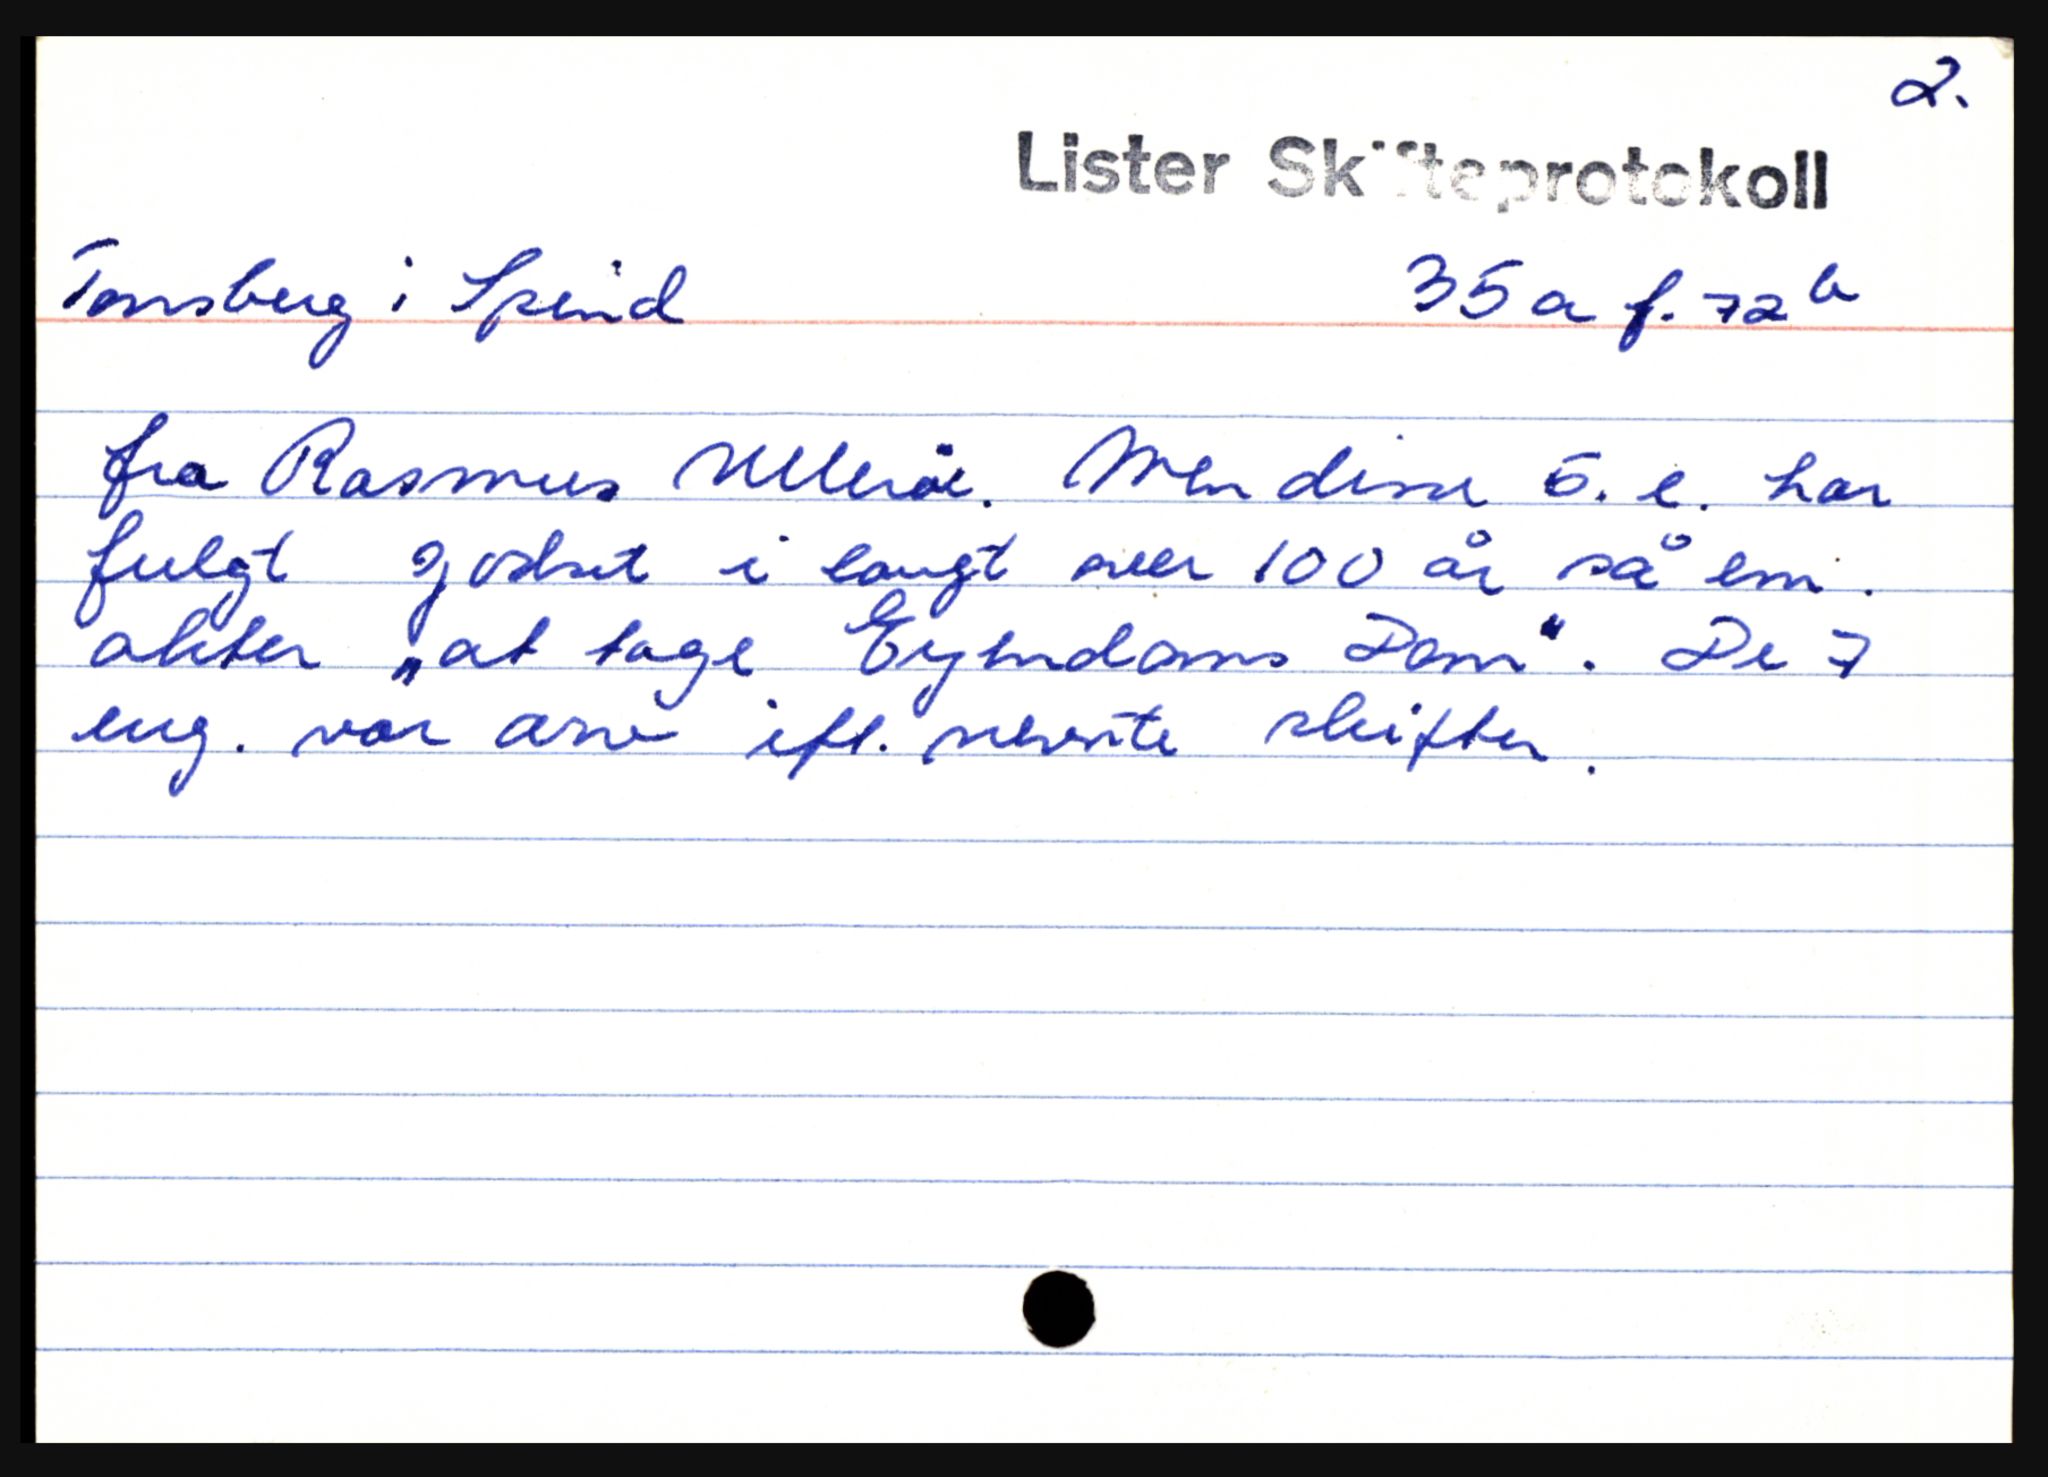 2.
Lister Skifteprotokoll
Tonsberg i Spind 35 a f. 72 b
fra Rasmus Ullerøe. Men disse 5. e. har
fulgt godset i langt over 100 år så em.
akter „at tage Eyendoms Dom". De 7
eng. var arv ifl. nevnte skifter.